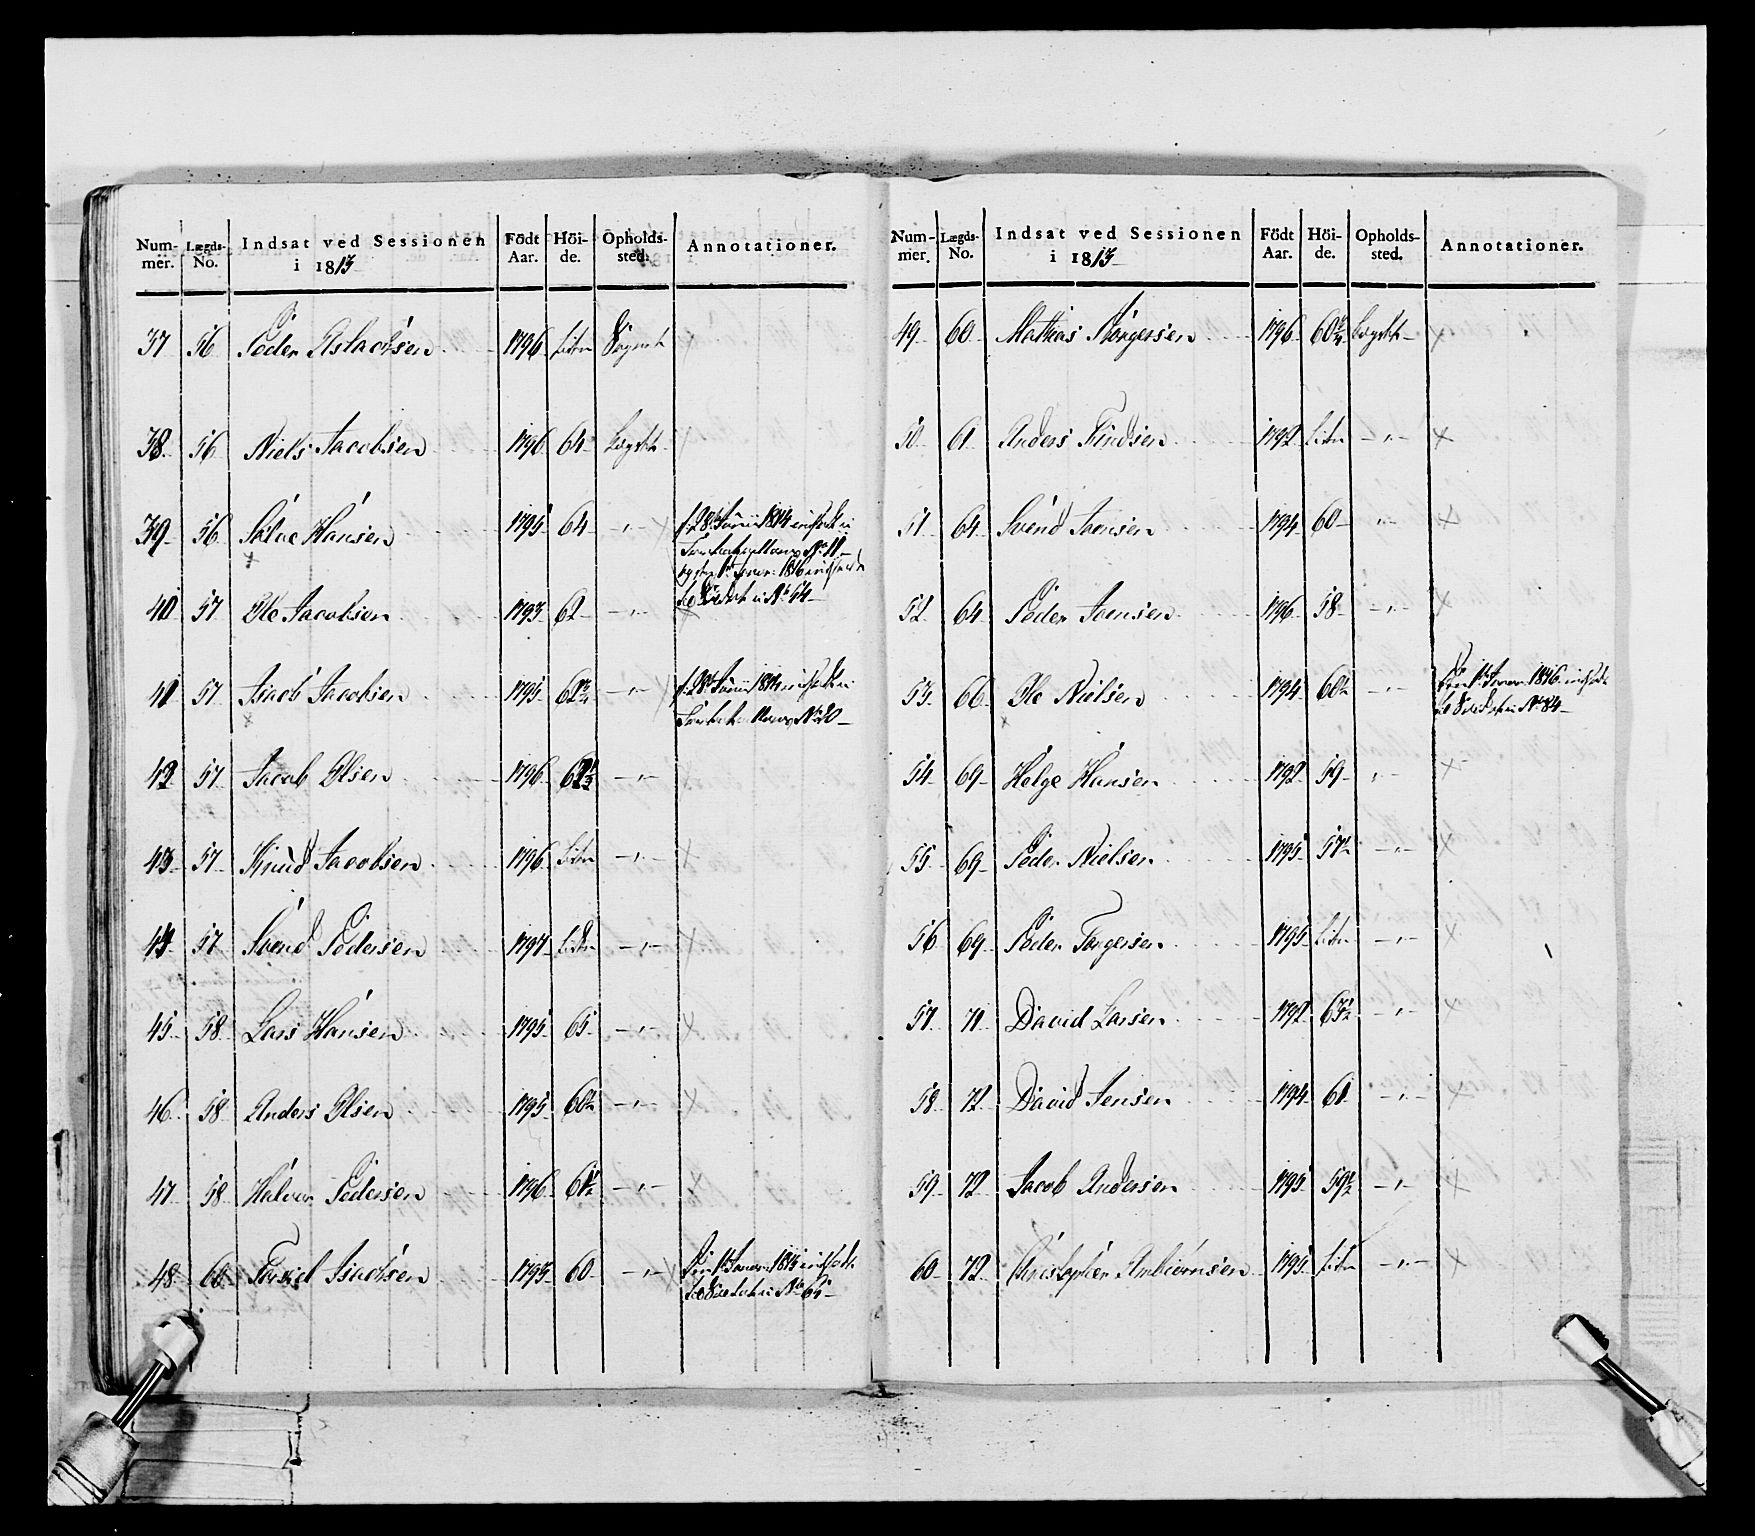 Num-mer. Lægds-No. Indsat ved Sessionen i 1813 Födt Aar. Höi-de. Opholds-sted. Annotationer.
37 56 Peder Aslachsen 1796 Liden
38 56 Niels Jacobsen 1796 64 Lægdet
39 56 Salve Hansen 1795 64 -"- d. 28de Junii 1814 indsadt i
No 11
og den 1te Janur: 1816 indsadt
No 54
40 57 Ole Jacobsen 1793 62 -"- ×
41 57 Jacob Jacobsen 1795 -"- d. 28de Junii 1814 indsadt i
No 20
42 57 Jacob Olsen 1796 -"- ×
43 57 Knud Jacobsen 1796 Liden -"- ×
44 57 Svend Pedersen 1797 Liden -"- ×
45 58 Lars Hansen 1795 65 -"- ×
46 58 Anders Olsen 1795 60½ -"- ×
47 58 Halvor Pedersen 1796 61½ -"- ×
48 60 Isachsen 1793 60 -"- × Den 1te Janur: 1815 indsadt
No 64
Num-mer. Lægds-No. Indsat ved Sessionen i 1813 Födt Aar. Höi-de. Opholds-sted. Annotationer.
49 60 Mathias Börgersen 1796 60¾ Lægdet ×
50 61 Anders Findsen 1792 Liden -"- ×
51 64 Svend Joensen 1794 60 -"- ×
52 64 Peder Joensen 1796 58 -"- ×
53 66 Ole Nielsen 1794 60½ -"- Den 1te Janur: 1816 indsadt
No 84
54 69 Helge Hansen 1792 59 -"- ×
55 69 Peder Nielsen 1795 57½ -"- ×
56 69 Peder Torgersen 1795 Liden -"- ×
57 71 David Larsen 1792 63½ -"- ×
58 72 David Jensen 1794 61 -"- ×
59 72 Jacob Andersen 1795 59½ -"- ×
60 72 Christopher Anbiörnsen 1795 Liden -"- ×